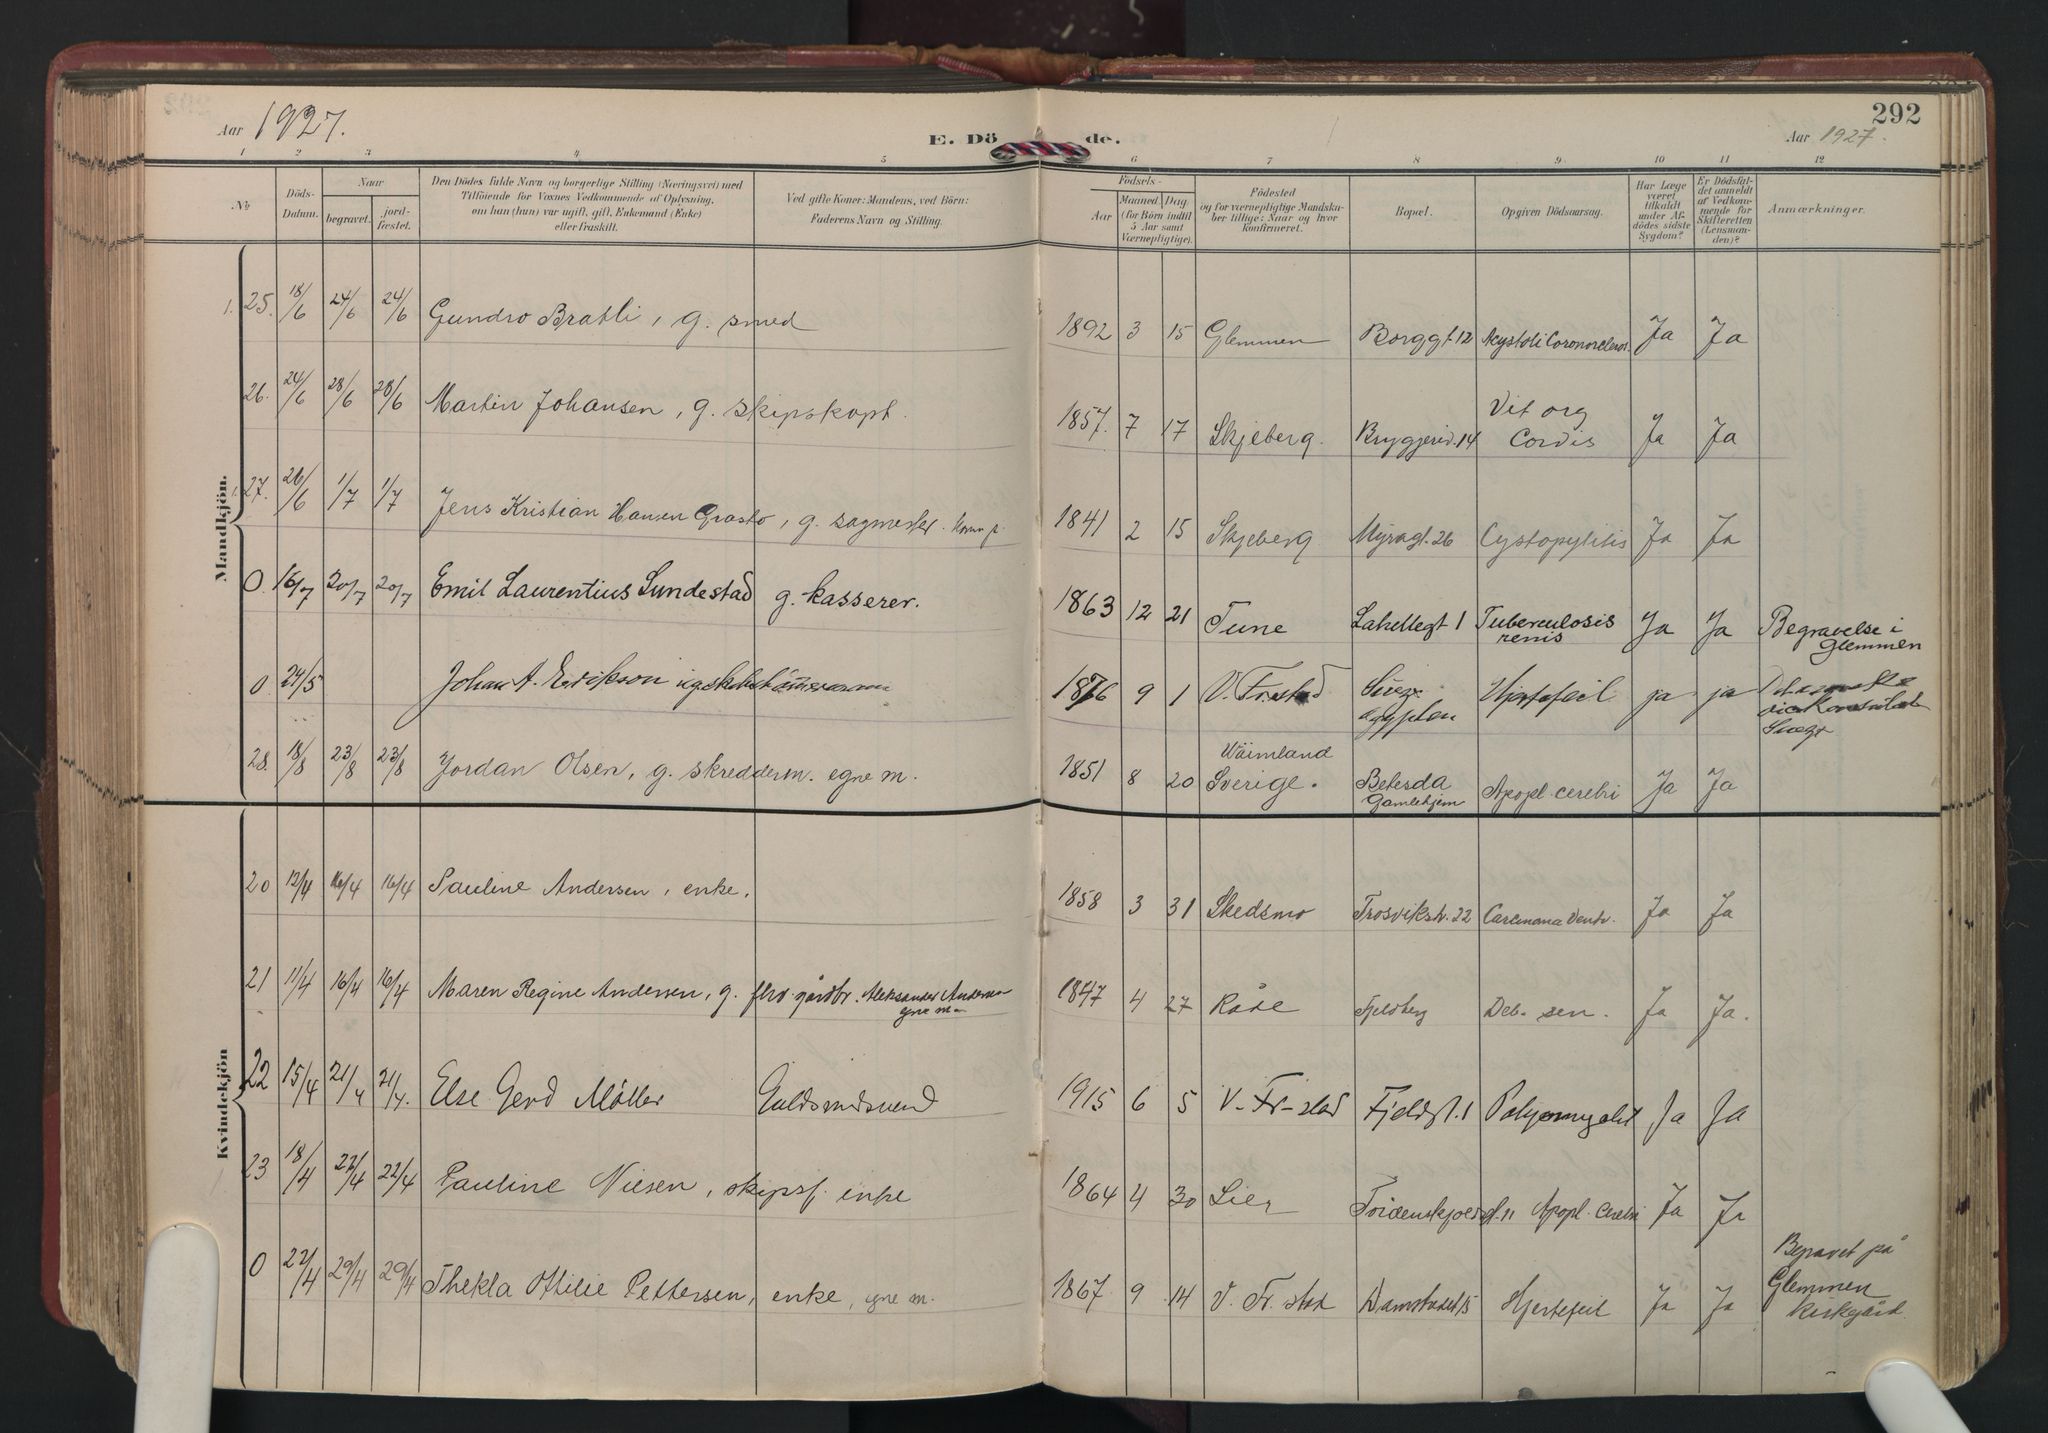 292
Aar 1927.
E. Dö de.
Aar 1927.
1 2 3 4 5 6 7 8 9 10 11 12
No.
Döds-Datum.
Naar
begravet.
jord-fæstet.
Den Dödes fulde Navn og borgerlige Stilling (Næringsvei) med
Tilföiende for Voxnes Vedkommende af Oplysning,
om han (hun) var ugift, gift, Enkemand (Enke)
eller fraskilt.
Ved gifte Koner: Mandens, ved Börn:
Faderens Navn og Stilling.
Födsels-
Aar
Maaned. Dag.
(for Börn indtil
5 Aar samt
Værnepligtige).
Födested
og for værnepligtige Mandsku-
ber tillige: Naar og hvor
konfirmeret.
Bopæl.
Opgiven Dödsaarsag.
Har Læge
været
tilkaldt
under Af-
dödes sidste
Sygdom?
Er Dödsfal-
det anmeldt
af Vedkom-
mende for
Skifteretten
(Lensman-
den)?
Anmærkninger.
Mandkjön.
25. 18/6 24/6 24/6 Gundro Bratli, g. smed 1892 3 15 Glemmen Borggt. 12 Ja Ja
26. 24/6 28/6 28/6 Martin Johansen, g. skipskapt. 1857. 7 17 Skjeberg. Bryggeriv. 14 Vit org
Cordis Ja Ja
27. 26/6 1/7 1/7 Jens Kristian Hansen Grasto, g. sagmester. 1841 2 15 Skjeberg Myragt. 26 Cystopyelitis Ja Ja
0. 16/7 20/7 20/7 Emil Laurentius Sundestad g. kasserer. 1863 12 21 Tune Lahellegt 1 Tuberculosis
renis Ja Ja Begravelse i
Glemmen
0. 24/5 Johan A. Erikson 1876 9 1 V. Fr.stad Suez
ægypten Hjertefeil ja ja
28. 18/8 23/8 23/8 Jordan Olsen, g. skredderm. egne m. 1851 8 20 Wärmland
Sverige. Betesda
Gamlehjem Apopl. cerebri Ja Ja
Kvindekjön
20 12/4 16/4 16/4 Pauline Andersen, enke. 1858 3 31 Skedsmo Trosvikstr. 22 Ja Ja
21 11/4 16/4 16/4 Maren Regine Andersen, g. fhv. gårdbr. Aleksander Andersen
egne m. 1847 4 27 Råde Fjeldberg Deb. sen. Ja Ja.
22 15/4 21/4 21/4. Else Gerd Möller Guldsmedsvend 1915 6 5 V. Fr-stad Fjeldgt. 1 Ja Ja
23 18/4 22/4 22/4 Pauline Nilsen, skipsf. enke 1864 4 30 Lier Tordenskjoldsgt. 11 Apopl. Cerebri Ja Ja
0 22/4 29/4 29/4 Thekla Ottilie Pettersen, enke, egne m. 1867. 9 14 V. Fr. stad Damstredet 5 Hjertefeil Ja Ja Begravet på
Glemmen
kirkgård.